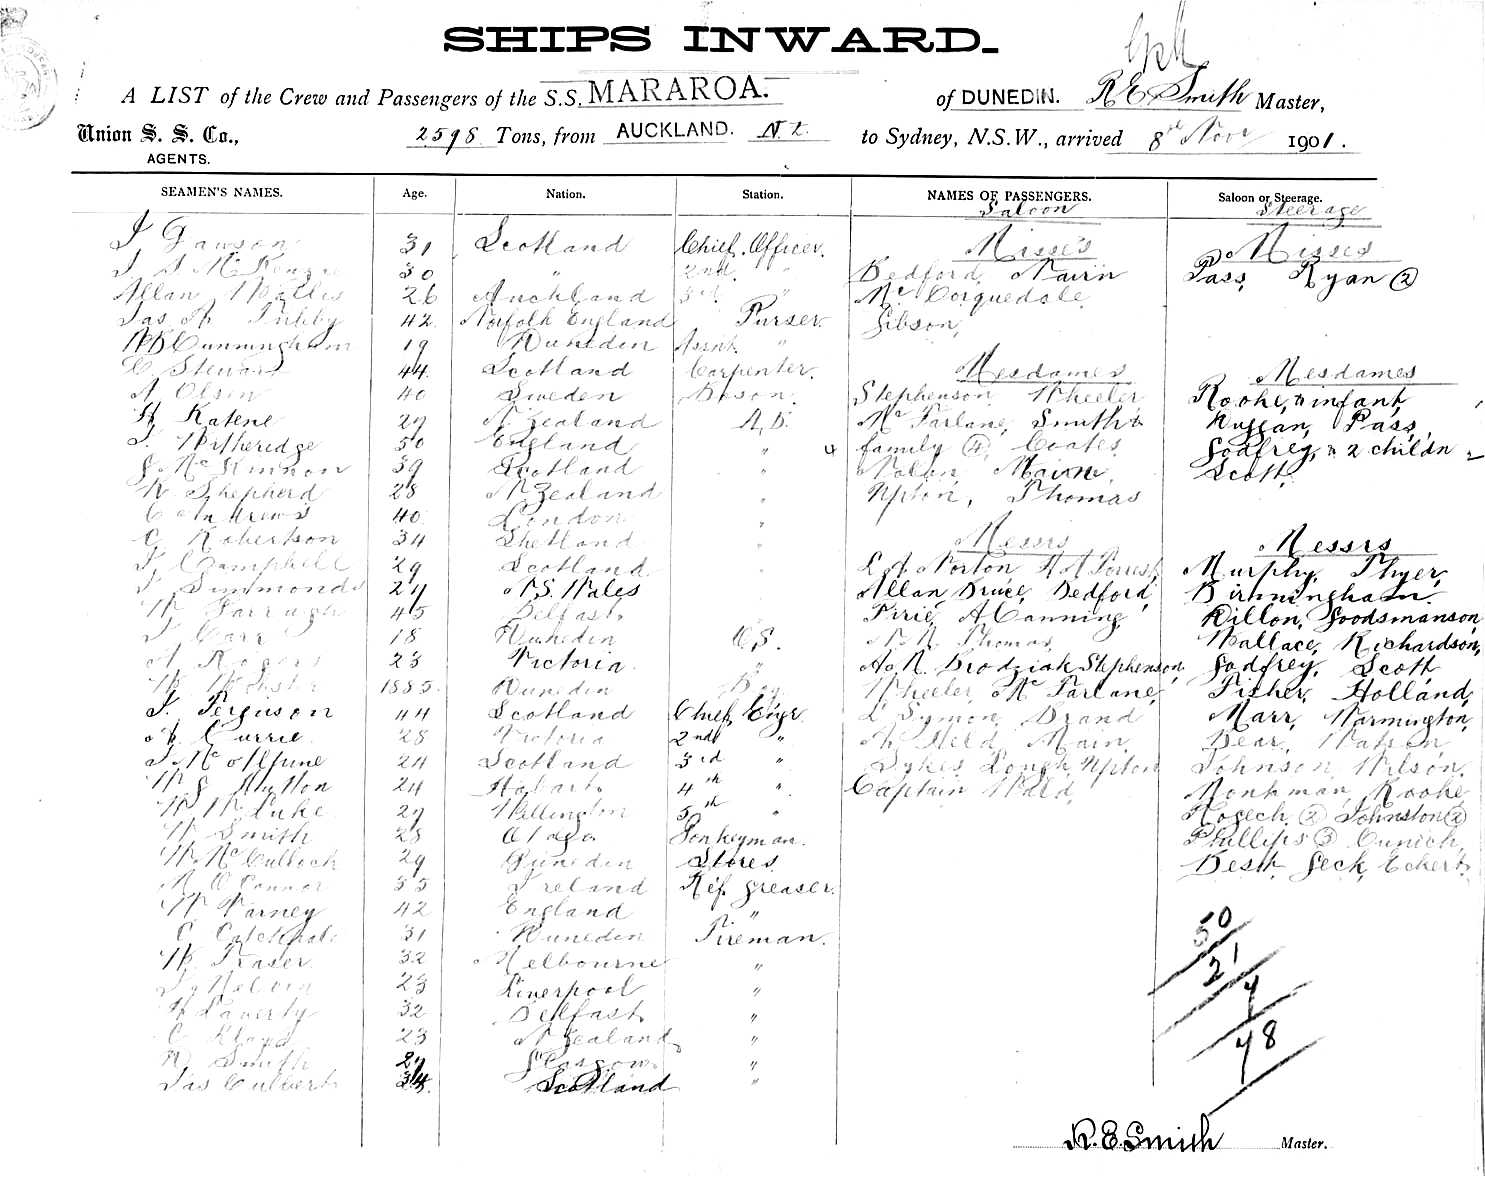 SHIPS INWARD.
A LIST of the Crew and Passengers of the S.S. MARAROA. of DUNEDIN. R E Smith Master,
Union S. S. Co., 2598 Tons, from AUCKLAND. N.Z. to Sydney, N.S.W., arrived 8th Novr 1901.
AGENTS.
SEAMEN'S NAMES. Age. Nation. Station. NAMES OF PASSENGERS. Saloon or Steerage.
Saloon Steerage
31 Scotland Chief Officer. Misses Misses
30 " 2nd " Bedford, Nairn Pass, Ryan ②
Allan Wallis 26 Auckland 3rd " Mc Corquedale
42 Norfolk England Purser Gibson,
Cunningham 19 Dunedin Assnt "
C Stewart 44 Scotland Carpenter. Mesdames Mesdames
A Olsen 40 Sweden Boson. Stephenson Wheeler Rooke, & infant,
H Katene 29 N Zealand A.B. Mc Farlane, Smith & Duggan, Pass,
T. Witheridge 50 England " family ④ Coates Godfrey, & 2 childn
J. McKinnon 39 Scotland Nolan, Mairn, Scott,
R Shepherd 28 N Zealand " Upton, Thomas
C Andrews 40 London "
C Robertson 34 Shetland " Messrs Messrs
J Campbell 29 Scotland L A Norton A A Forrest, Murphy, Thyer,
J Simmonds 27 N.S. Wales Allan Bruce, Bedford, Birmingham.
45 Belfast Pirrie, A Canning Dillon, Goodsmanson,
J Carr 18 Dunedin O.S. Thomas Wallace, Richardson,
A Rogers 23 Victoria. " A & R. Brodziak Stephenson, Godfrey, Scott
1885. Dunedin Boy Wheeler, Mc Farlane, Fisher, Holland,
J. Ferguson 44 Scotland Chief Engr. Brand Marr, Warmington,
Currie 28 Victoria 2nd " Held, Main, Bear, Watson,
24 Scotland 3rd " Sykes, Lough, Upton Johnson, Wilson,
24 Hobart 4th " Captain Wald, Monkman, Rooke
W W Luke 27 Wellington 5th " ② Johnston ②
W Smith 28 Otago Donkeyman. Phillips ③
W McCulloch 29 Dunedin Stores Best, Geck, Eckert,
M O'Connor 35 Ireland Ref. Greaser.
W Varney 42 England "
C 31 Dunedin Fireman. 50
W. Fraser 32 Melbourne " 21
23 Liverpool " 7
H Laverty 32 Belfast "
C 23 N Zealand " 78
W Smith 27 Glasgow "
Jas Culbert 34 Scotland "
R. E. Smith Master.